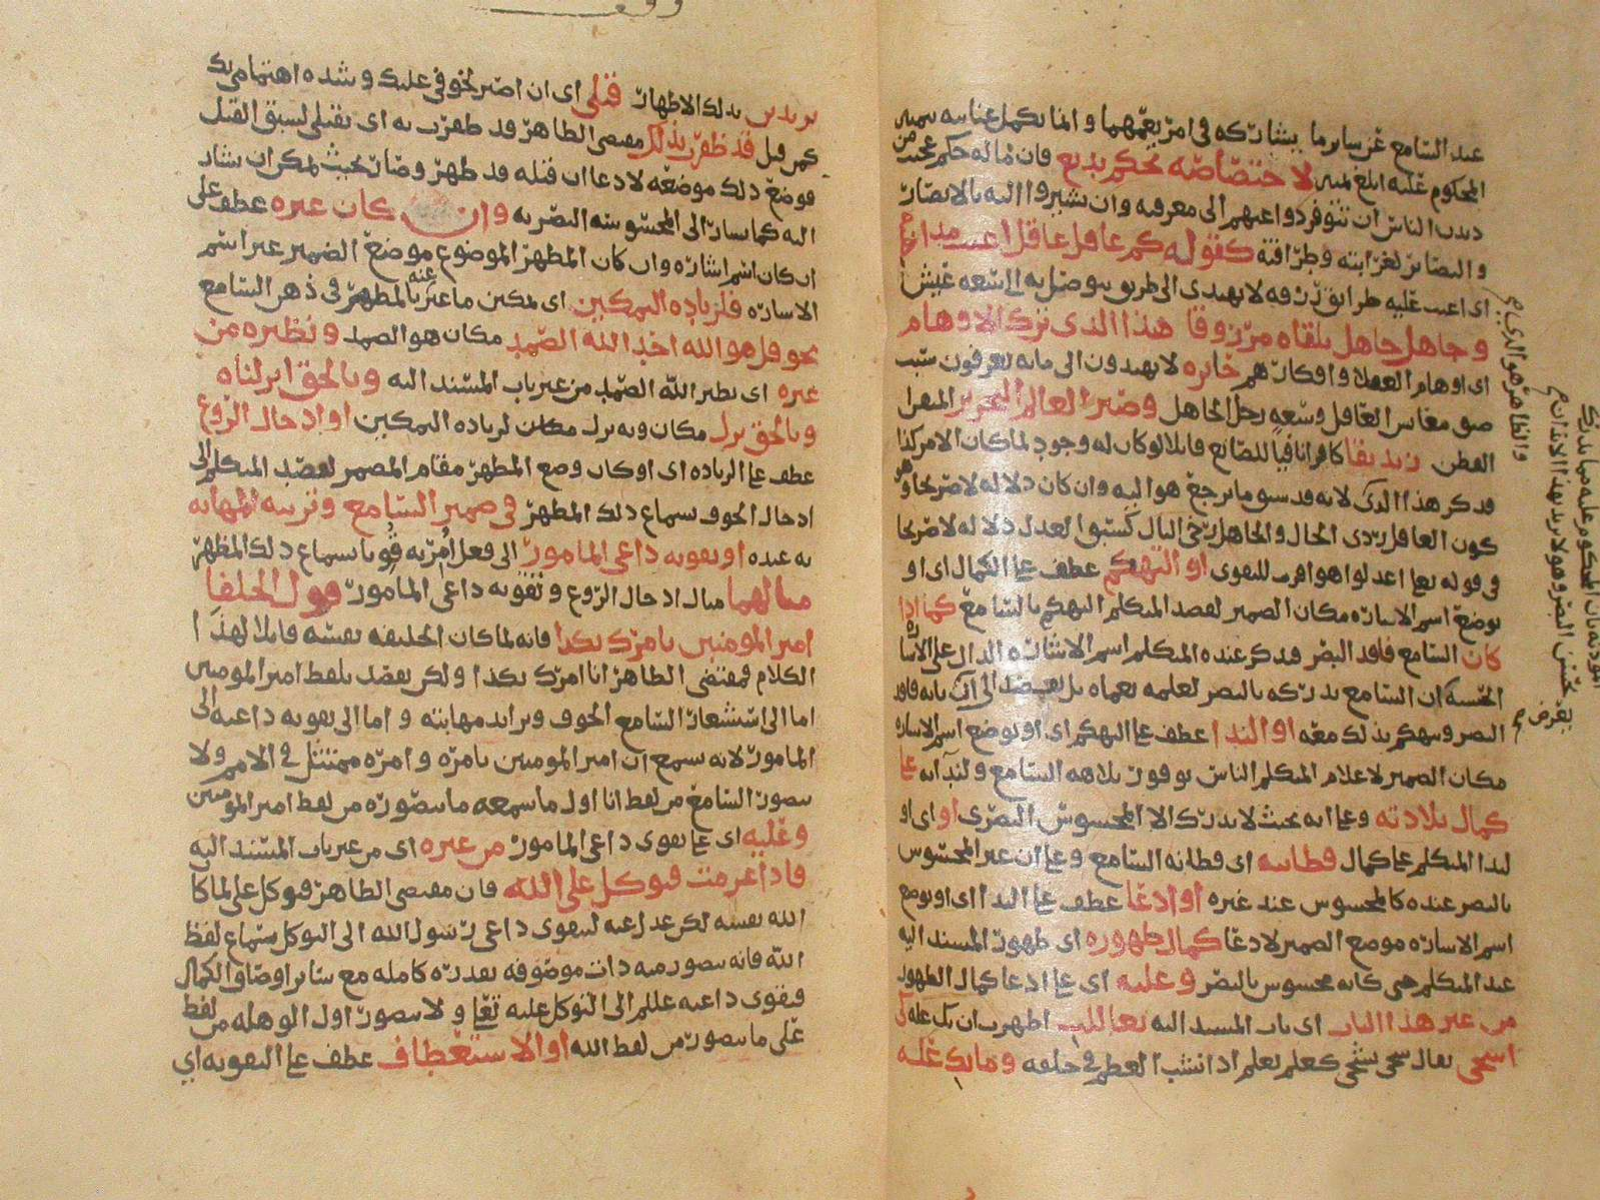 عند السامع عن سائر ما يشاركه في امر يعمهما وانما يكمل عنايته بتمييز
المحكوم عليه ابلغ تمييز لاختصاصه بحكم بديع فان ما له حكم عجيب من
الناس ان تتوفر دواعيهم الى معرفته وان يشيروا اليه بالابصار
والبصائر لغرابته وطرافته كقوله كم عاقل عاقل اعيت مذاهبه
اي اعيت عليه طرايق رزقه لا يهتدي الى طريق يوصل به الى سعة عيش
وجاهل جاهل تلقاه مرزوقا هذا الذي ترك الاوهام
اي اوهام العقلا وافكارهم حايره لا يهتدون الى ما به يعرفون سبب
ضيق معاش العاقل وسعه رحل الجاهل وصير العالم النحرير
الفطن زنديقا كافرا نافيا للصانع قايلا لو كان له وجود لما كان الامر كذا
فذكر هذا الذي لانه قد سبق ما يرجع هو اليه وان كان دلاله لا صريحا وهو
كون العاقل ردي الحال والجاهل رخي البال كسبق العدل دلاله لا صريحا
في قوله تعا اعدلوا هو اقرب للتقوى او التهكم عطف على الكمال اي او
يوضع اسم الاشاره مكان الضمير لقصد المتكلم التهكم بالسامع كما اذا
كان السامع فاقد البصر فذكر عنده المتكلم اسم الاشاره الدال على الاشاره
الحسيه ان السامع يدركه بالبصر لعلمه بعماه بل يقصد الى انه فاقد
البصر وتهكم بذلك معه او الندا عطف على التهكم اي او يوضع اسم الاشاره
مكان الضمير لاعلام المتكلم الناس بوفور بلاهه السامع ولندائه على
كمال بلادته وعلى انه بحيث لا يدرك الا المحسوس البصري او اي او
لندا المتكلم على كمال فطانته اي فطانه السامع وعلى ان غير المحسوس
بالبصر عنده كالمحسوس عند غيره او ادعا عطف على الندا اي او يوضع
اسم الاشاره موضع الضمير لادعا كمال ظهوره اي ظهور المسند اليه
عند المتكلم حتى كانه محسوس بالبصر وعليه اي على ادعا كمال الظهور
من غير هذا الباب اي باب المسند اليه تعاللت اظهرت ان بك عله كي
اشجى يقال شجي يشجى كعلم يعلم اذا نشب العظم في حلقه وما بك عله
والظاهر هو الذي
تريدين بذلك الاظهار قتلي اي ان اصير لخوفي عليك وشده اهتمامي بك
كمن قتل قد ظفرت بذلك مقتضى الظاهر قد ظفرت به اي بقتلي لسبق القتل
فوضع ذلك موضعه لادعا ان قتله قد ظهر وصار بحيث يمكن ان يشار
اليه كما يشار الى المحسوسه البصريه وان كان غيره عطف على
ان كان اسم اشاره وان كان المظهر الموضوع موضع الضمير غير اسم
الاشاره فلزياده التمكين اي تمكين ما عبر عنه بالمظهر في ذهن السامع
نحو قل هو الله احد الله الصمد مكان هو الصمد ونظيره من
غيره اي نظير الله الصمد من غير باب المسند اليه وبالحق انزلناه
وبالحق نزل مكان وبه نزل مكان لزياده التمكين او ادخال الروع
عطف على الزياده اي او كان وضع المظهر مقام المضمر لقصد المتكلم الى
ادخال الخوف بسماع ذلك المظهر في ضمير السامع وتربيه المهابه
به عنده او تقويه داعي المامور الى فعل امر به بسماع ذلك المظهر
مثالهما مثال ادخال الروع وتقويه داعي المامور قول الخلفا
امير المومنين يامرك بكذا فانه لما كان الخليفه نفسه قايلا لهذا
الكلام فمقتضى الظاهر انا امرك بكذا ولكن يقصد بلفظ امير المومنين
اما الى استشعار السامع الخوف وتزايد مهابته واما الى تقويه داعيه الى
المامور لانه يسمع ان امير المومنين يامره وامره ممتثل في الامر ولا
يتصور السامع من لفظ انا اول ما سمعه ما يتصوره من لفظ امير المومنين
وعليه اي على تقوي داعي المامور من غيره اي من غير باب المسند اليه
فاذا عزمت فتوكل على الله فان مقتضى الظاهر فتوكل علي لما كان
الله نفسه لكن عدل عنه لتقوي داعي رسول الله الى التوكل بسماع لفظ
الله فانه يتصور منه ذات موصوفه بقدره كامله مع سائر اوصاف الكمال
فيقوى داعيه الى التوكل عليه تعا ولا يتصور اول الوهله من لفظ
على ما يتصور من لفظ الله او الاستعطاف عطف على التقويه اي